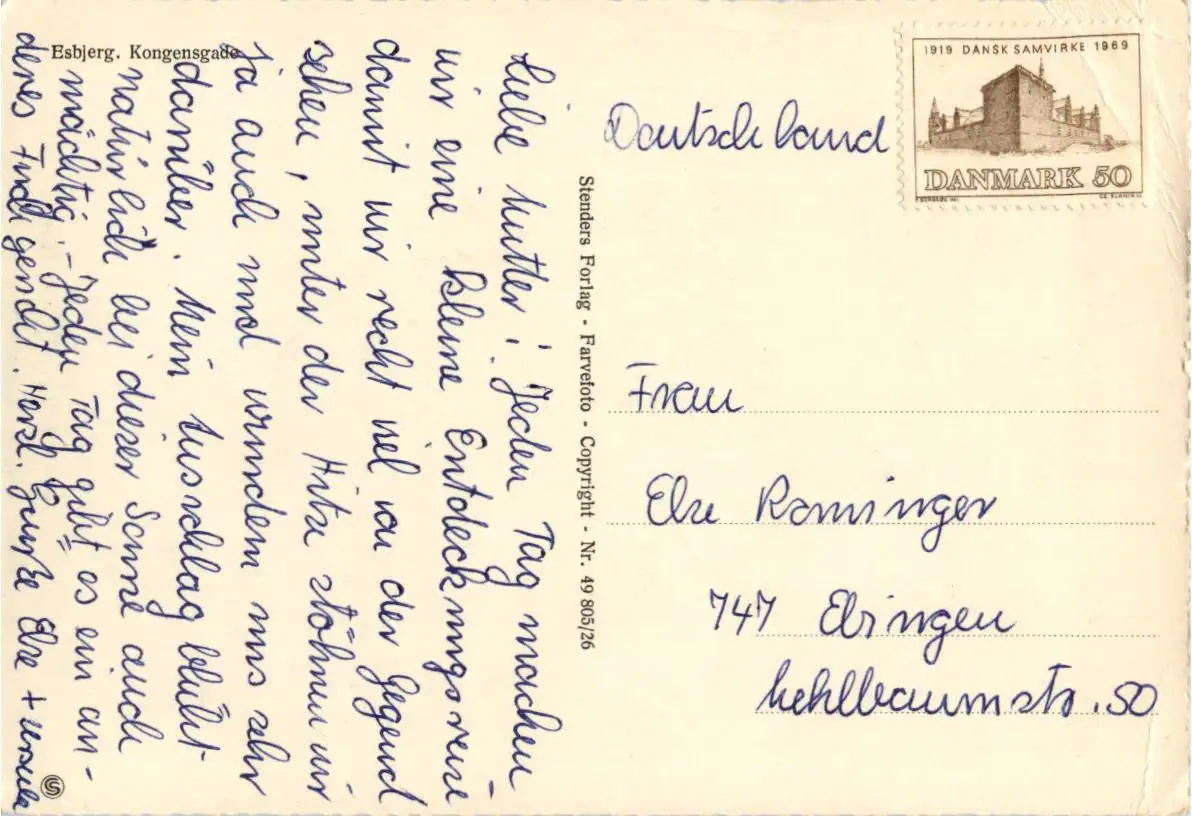 Esbjerg. Kongensgade
Liebe Mutter! Jeden Tag machen
wir eine kleine Entdeckungsreise
damit wir recht viel von der Gegend
sehen, unter der Hitze stöhnen wir
ja auch und wundern uns sehr
darüber. Mein Ausschlag blüht
natürlich bei dieser Sonne auch
mächtig. - Jeden Tag gibt es ein an-
deres Fischgericht. Herzl. Grüße Else + Ursula
Stenders Forlag - Farvefoto - Copyright - Nr. 49 805/26
1919 DANSK SAMVIRKE 1969
DANMARK 50
Deutschland
Frau
Else Rominger
747 Ebingen
Mehlbaumstr. 50